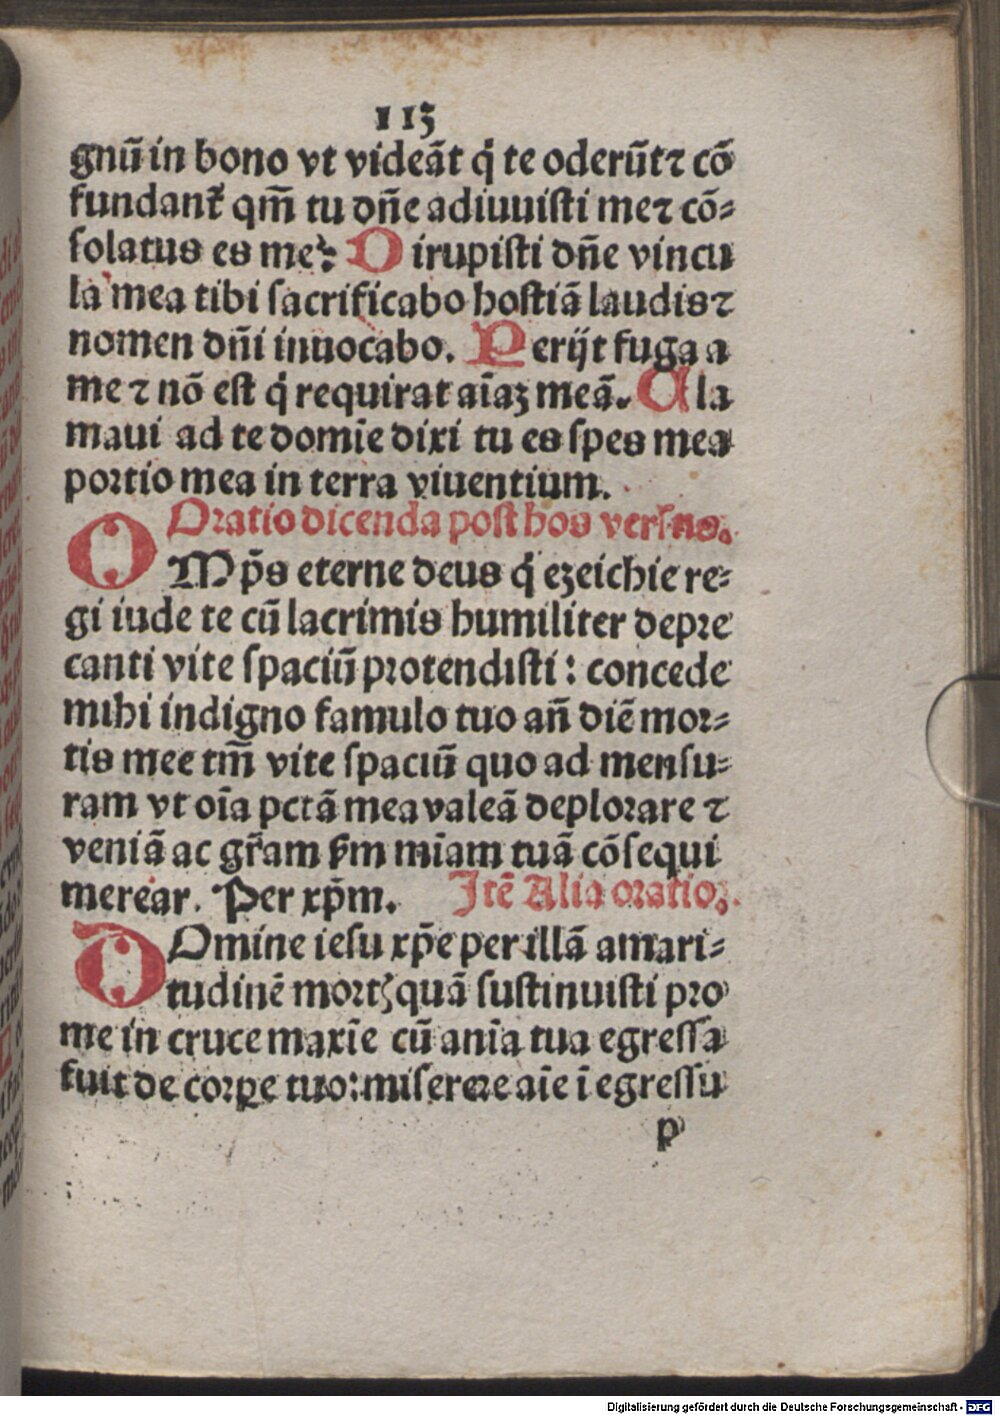 113
gnū in bono vt videāt q̇ te oderūt ⁊ cō
fundant᷑ qm̄ tu dn̄e adiuuisti me ⁊ cō⸗
solatus es me⁊: Dirupisti dn̄e vincu
la mea tibi sacrificabo hostiā laudis ⁊
nomen dn̄i inuocabo. Perijt fuga a
me ⁊ nō est q̇ requirat aīaꝫ meā. Cla
maui ad te domīe dixi tu es spes mea
portio mea in terra viuentium.
Oratio dicenda post hos versus.
OMp̄s eterne deus q̇ ezeichie re⸗
gi iude te cū lacrimis humiliter depre
canti vite spaciū protendisti: concede
mihi indigno famulo tuo an̄ diē mor⸗
tis mee tm̄ vite spaciū quo ad mensu⸗
ram vt oīa pctā mea valeā deplorare ⁊
veniā ac gr̄am ẜm mīam tuā cōsequi
merear. Per xp̄m. Itē Alia oratio.
DOmine iesu xp̄e per illā amari⸗
tudinē mortꝭ quā sustinuisti pro
me in cruce maxīe cū anīa tua egressa
fuit de corꝑe tuo: miserere aīe ī egressu
p
Digitalisierung gefördert durch die Deutsche Forschungsgemeinschaft - DFG